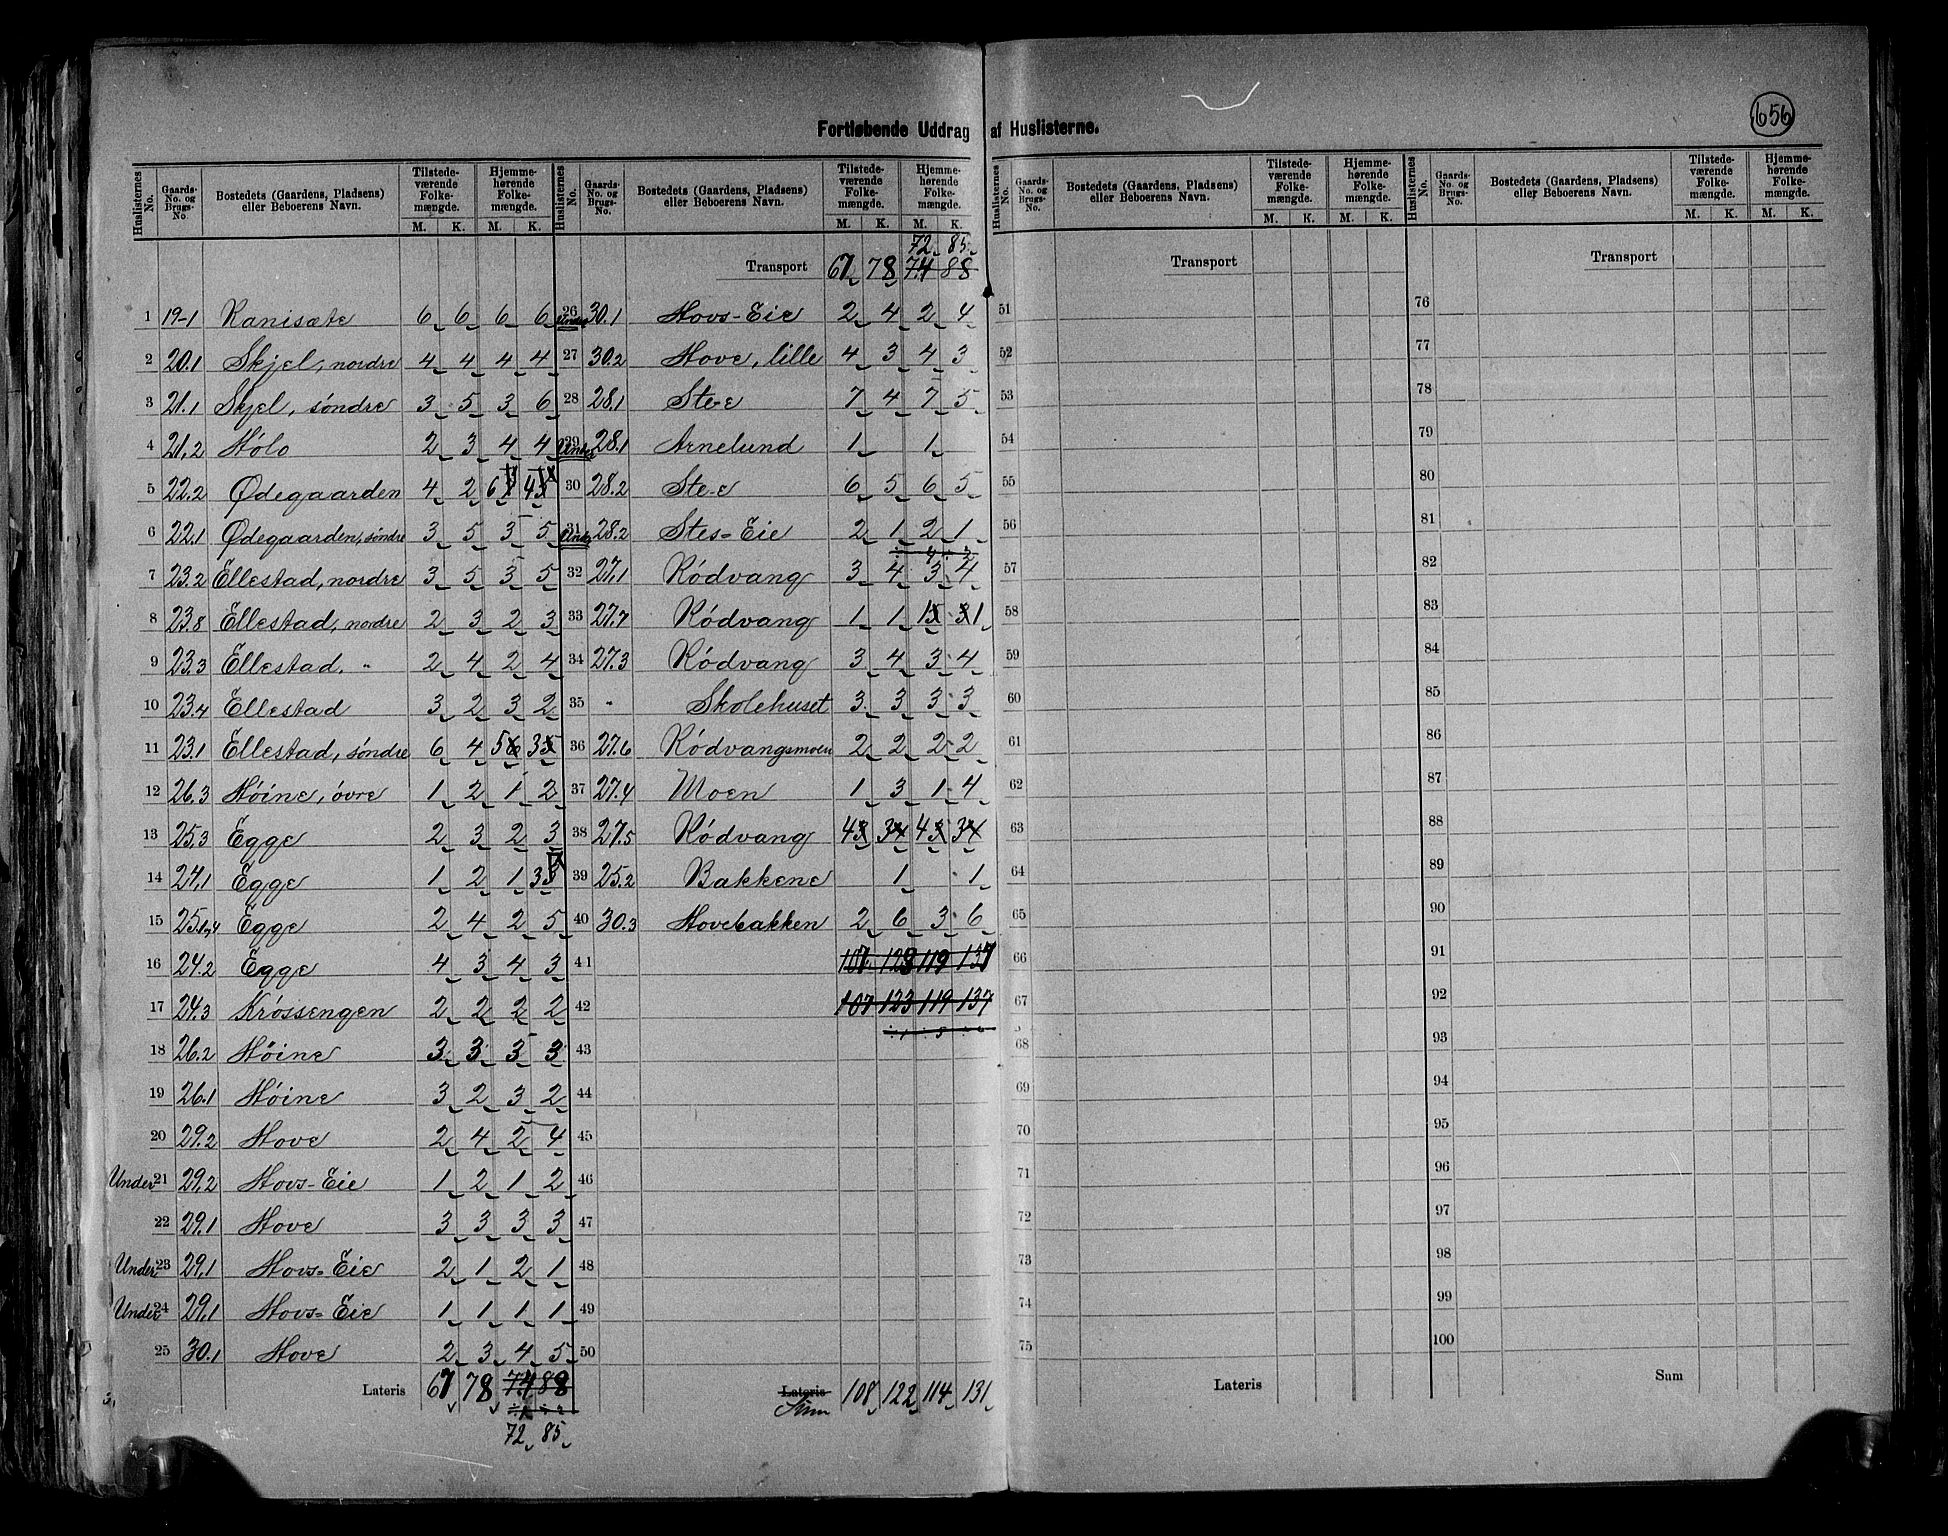 656
Fortløbende Uddrag af Huslisterne.
Huslisternes No. Gaards-No. og Brugs-No. Bostedets (Gaardens, Pladsens) eller Beboerens Navn. Tilstedeværende Folkemængde. M. K. Hjemmehørende Folkemængde. M. K.
1 19-1 Ranisæte 6 6 6 6
2 20.1 Skjel, nordre 4 4 4 4
3 21.1 Skjel, søndre 3 5 3 6
4 21.2 Hólo 2 3 4 4
5 22.2 Ødegaarden 4 2 6 4
6 22.1 Ødegaarden, søndre 3 5 3 5
7 23.2 Ellestad, nordre 3 5 3 5
8 23.8 Ellestad, nordre 2 3 2 3
9 23.3 Ellestad, " 2 4 2 4
10 23.4 Ellestad 3 2 3 2
11 23.1 Ellestad, søndre 6 4 5 6 3 5
12 26.3 Hóine, óvre 1 2 1 2
13 25.3 Egge 2 3 2 3
14 24.1 Egge 1 2 1 3
15 25.1,4 Egge 2 4 2 5
16 24.2 Egge 4 3 4 3
17 24.3 Króssengen 2 2 2 2
18 26.2 Hóine 3 3 3 3
19 26.1 Hóine 3 2 3 2
20 29.2 Hove 2 4 2 4
Under 21 29.2 Hovs-Eie 1 2 1 2
22 29.1 Hove 3 3 3 3
Under 23 29.1 Hovs-Eie 2 1 2 1
Under 24 29.1 Hovs-Eie 1 1 1 1
25 30.1 Hove 2 3 4 5
Lateris 67 78 74 88
72 85
Huslisternes No. Gaards-No. og Brugs-No. Bostedets (Gaardens, Pladsens) eller Beboerens Navn. Tilstedeværende Folkemængde. M. K. Hjemmehørende Folkemængde. M. K.
72 85
Transport 67 78 74 88
26 Under 30.1 Hovs-Eie 2 4 2 4
27 30.2 Hove, lille 4 3 4 3
28 28.1 Ste-e 7 4 7 5
29 Under 28.1 Arnelund 1 1
30 28.2 Ste-e 6 5 6 5
31 Under 28.2 Stes-Eie 2 1 2 1
32 27.1 Ródvang 3 4 3 4
33 27.7 Ródvang 1 1 1 5 3 1
34 27.3 Ródvang 3 4 3 4
35 " Skolehuset 3 3 3 3
36 27.6 Ródvangsmoen 2 2 2 2
37 27.4 Moen 1 3 1 4
38 27.5 Ródvang 4 3 3 4 4 3 3 4
39 25.2 Bakkene 1 1
40 30.3 Hovebakken 2 6 3 6
41 107 123 119 137
42 107 123 119 137
43
44
45
46
47
48
49
50
Lateris Sum 108 122 114 131
Huslisternes No. Gaards-No. og Brugs-No. Bostedets (Gaardens, Pladsens) eller Beboerens Navn. Tilstedeværende Folkemængde. M. K. Hjemmehørende Folkemængde. M. K.
Transport
51
52
53
54
55
56
57
58
59
60
61
62
63
64
65
66
67
68
69
70
71
72
73
74
75
Lateris
Huslisternes No. Gaards-No. og Brugs-No. Bostedets (Gaardens, Pladsens) eller Beboerens Navn. Tilstedeværende Folkemængde. M. K. Hjemmehørende Folkemængde. M. K.
Transport
76
77
78
79
80
81
82
83
84
85
86
87
88
89
90
91
92
93
94
95
96
97
98
99
100
Sum